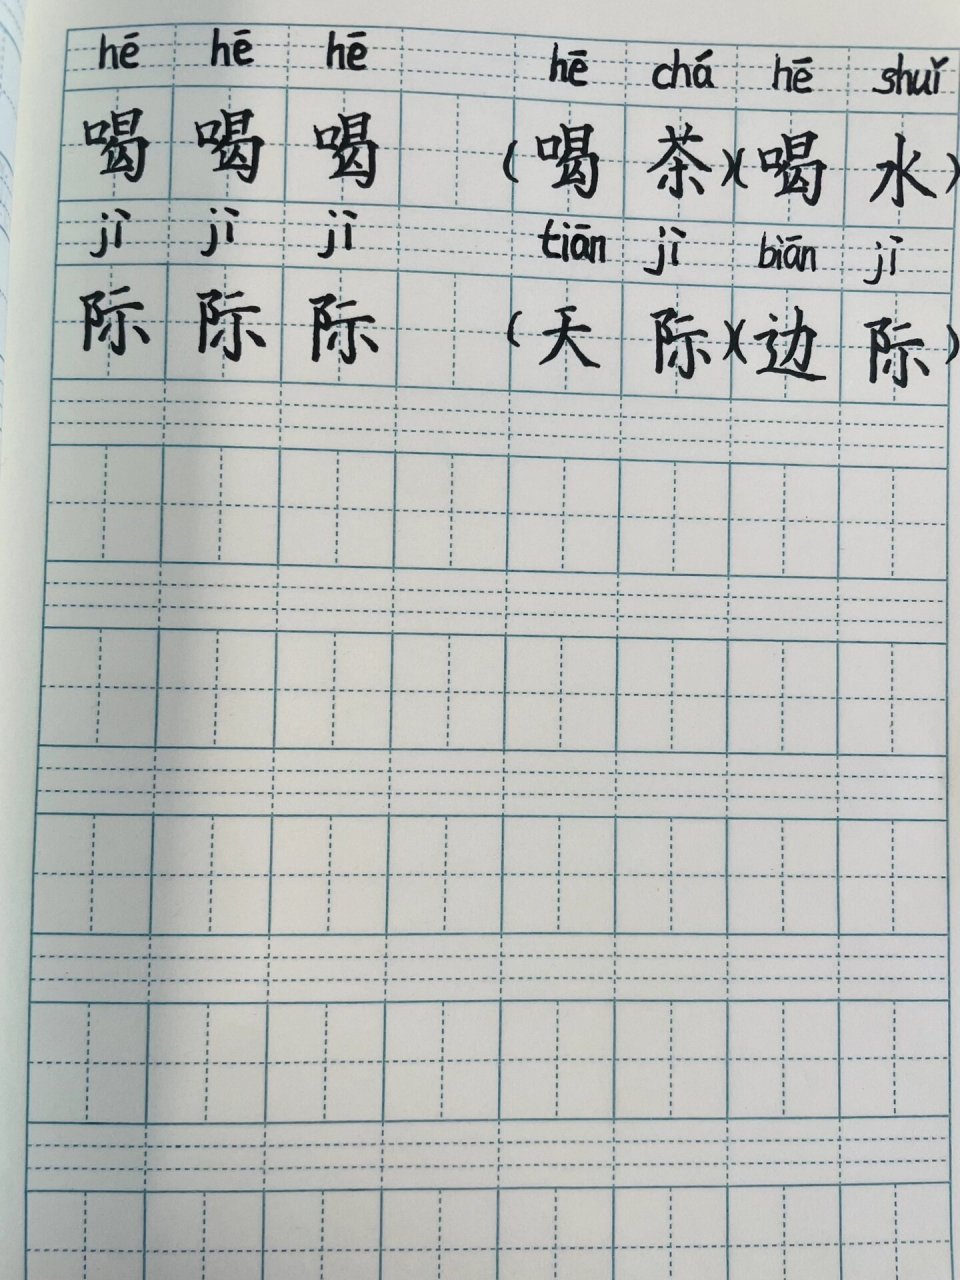 hē hē hē hē chá hē shuǐ
喝 喝 喝 (喝 茶)(喝 水)
jì jì jì tiān jì biān jì
际 际 际 (天 际)(边 际)